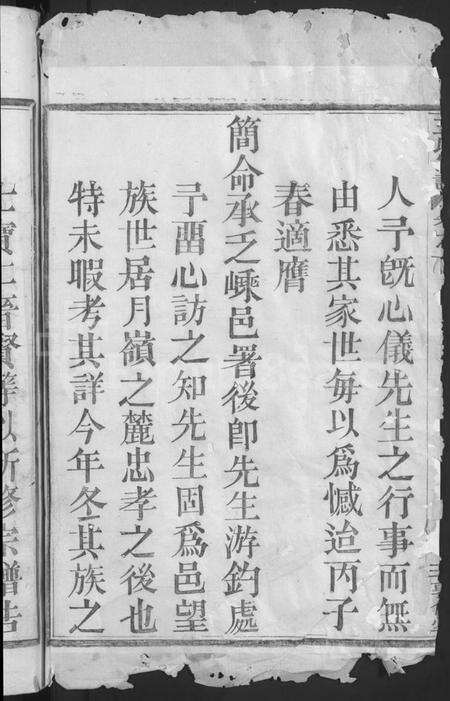 人予旣心儀先生之行事而無
由悉其家世每以爲憾迨丙子
春適膺
簡命承乏嵊邑署後卽先生游釣處
予畱心訪之知先生固爲邑望
族世居月嶺之麓忠孝之後也
特未暇考其詳今年冬其族之